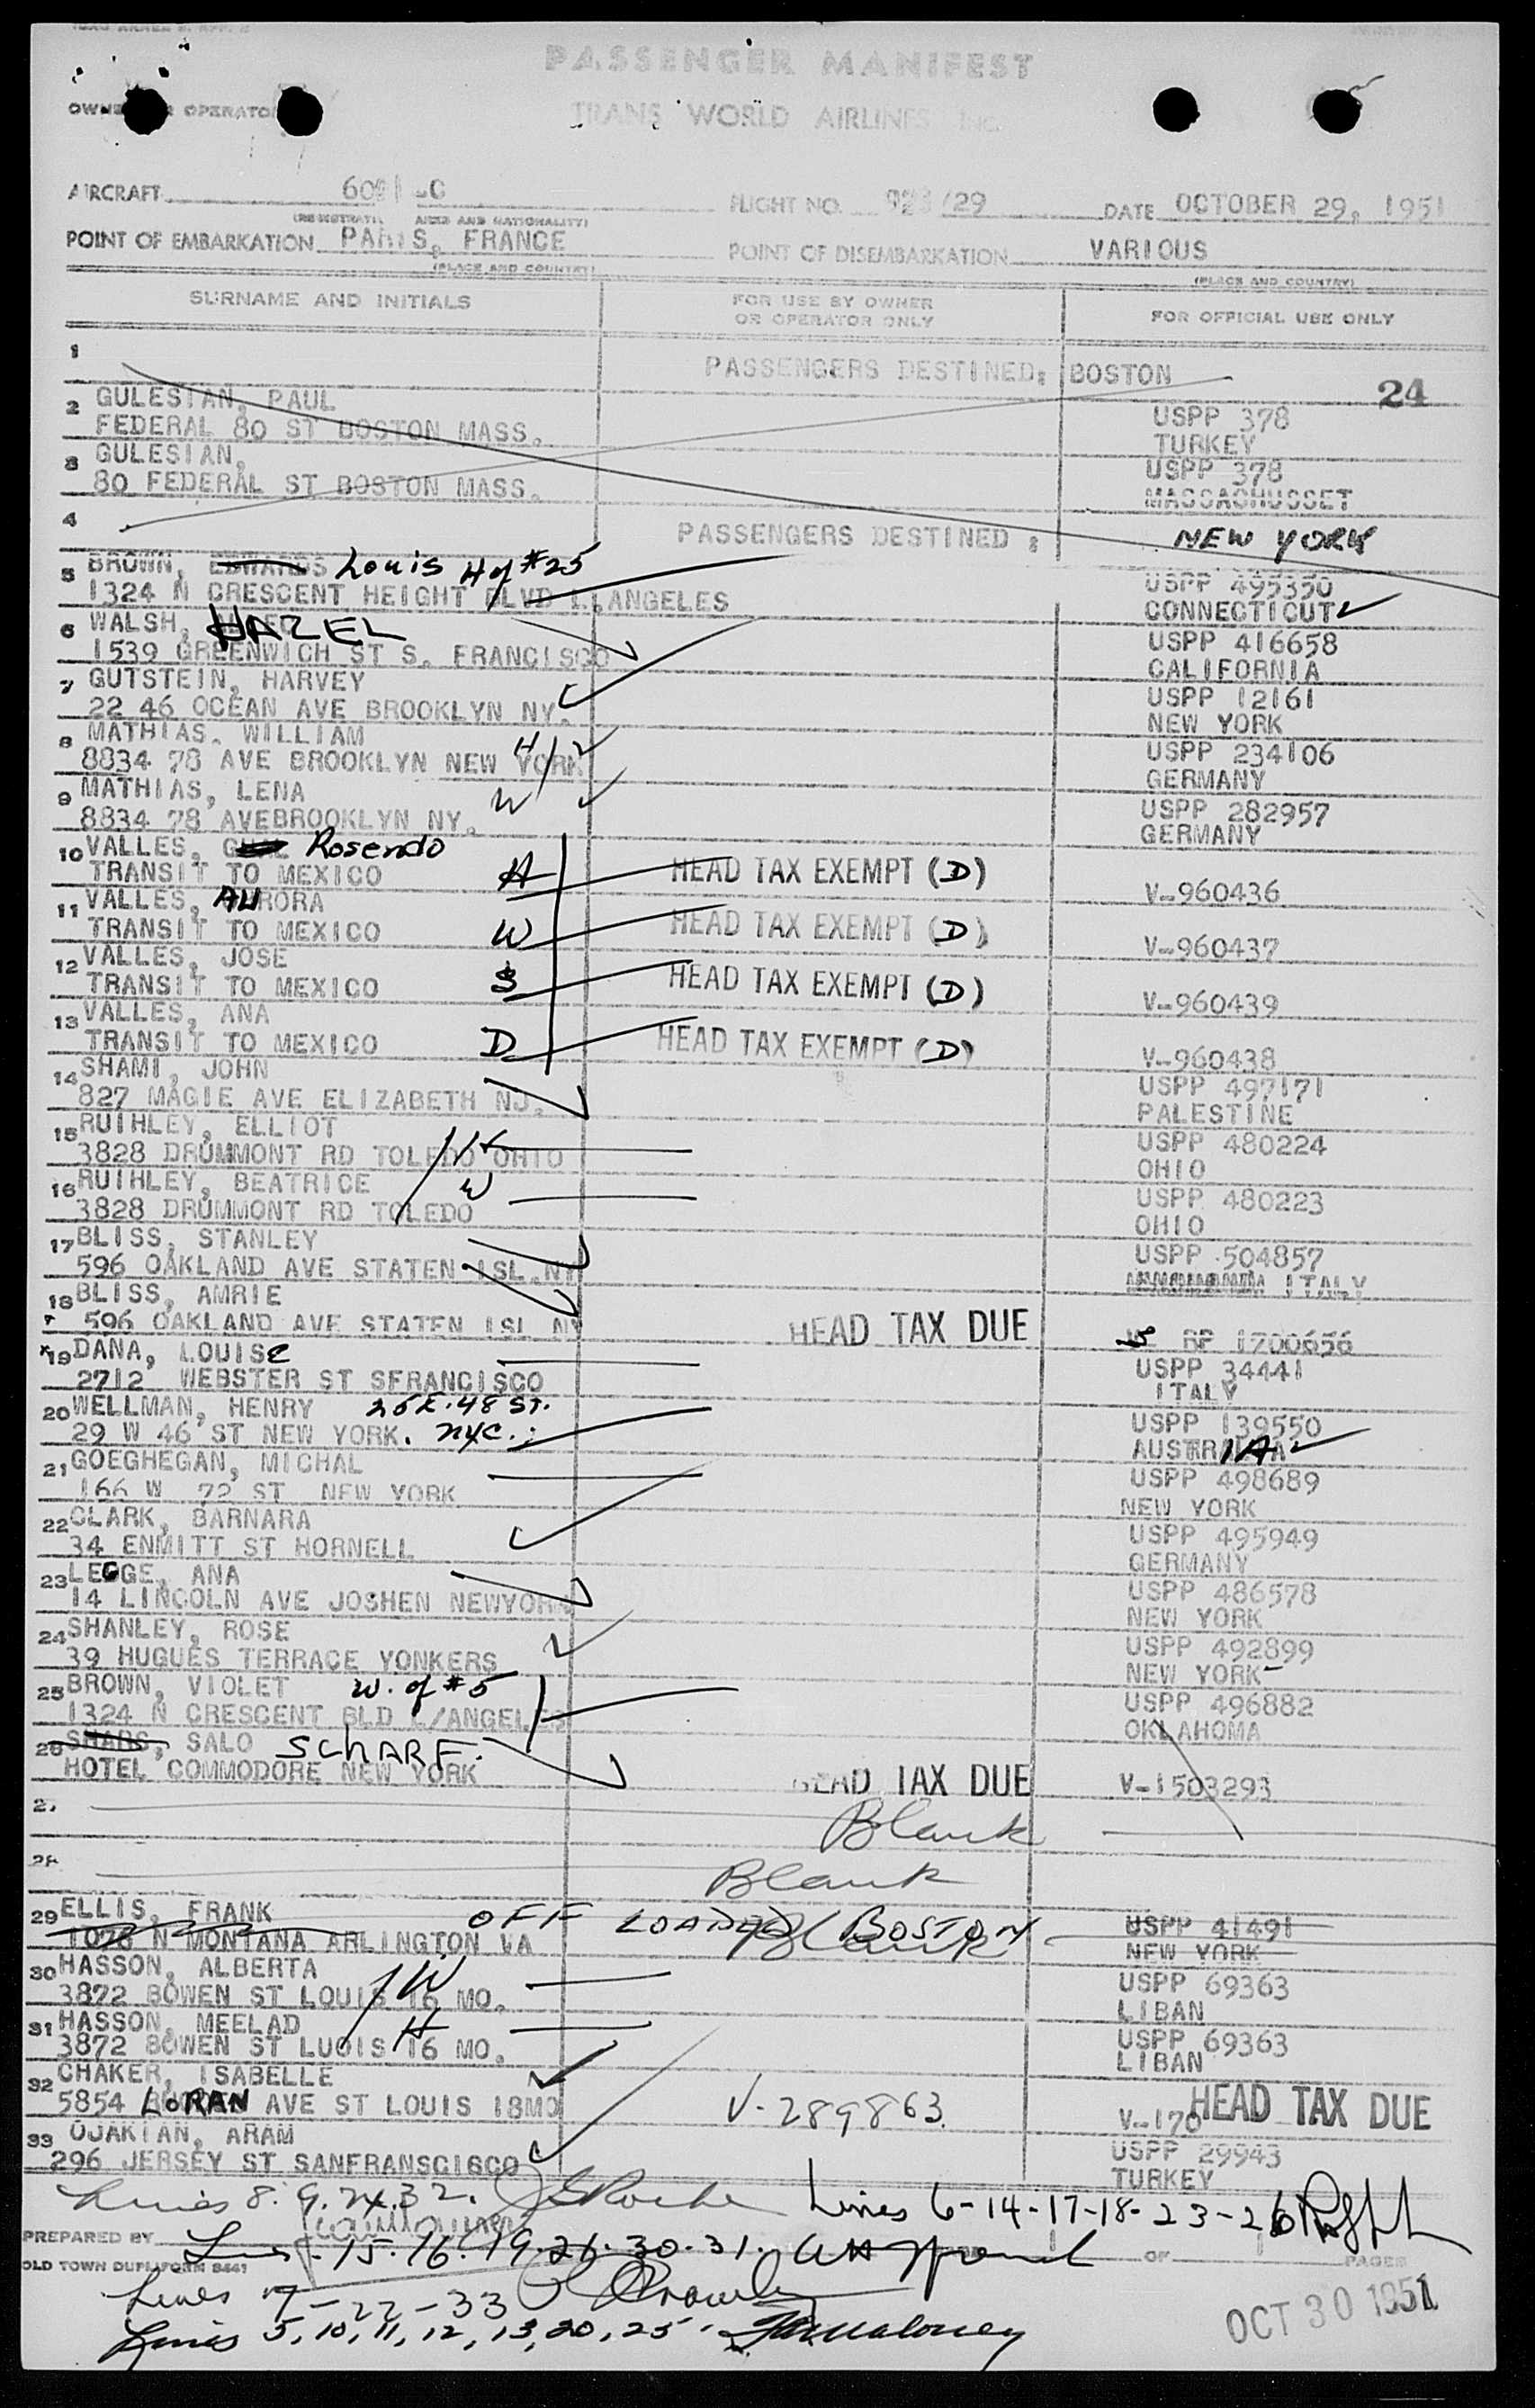 PASSENGER MANIFEST
OWNER OR OPERATOR TRANS WORLD AIRLINES INC.
AIRCRAFT FLIGHT NO. /29 DATE OCTOBER 29, 1951
POINT OF EMBARKATION PARIS, FRANCE POINT OF DISEMBARKATION VARIOUS
(PLACE AND COUNTRY) (PLACE AND COUNTRY)
SURNAME AND INITIALS FOR USE BY OWNER OR OPERATOR ONLY FOR OFFICIAL USE ONLY
1 PASSENGERS DESTINED: BOSTON
24
2 GULESIAN, PAUL USPP 378
FEDERAL 80 ST BOSTON MASS. TURKEY
3 GULESIAN, USPP 378
80 FEDERAL ST BOSTON MASS. MASSACHUSSET
4 PASSENGERS DESTINED : NEW YORK
5 BROWN, EDWARDS Louis H of #25 USPP 495350
1324 N CRESCENT HEIGHT BLVD L.ANGELES CONNECTICUT
6 WALSH, HAZEL USPP 416658
1539 GREENWICH ST S. FRANCISCO CALIFORNIA
7 GUTSTEIN, HARVEY USPP 12161
22 46 OCEAN AVE BROOKLYN NY. NEW YORK
8 MATHIAS. WILLIAM H USPP 234106
8834 78 AVE BROOKLYN NEW YORK GERMANY
9 MATHIAS, LENA W USPP 282957
8834 78 AVEBROOKLYN NY. GERMANY
10 VALLES, Rosendo
TRANSIT TO MEXICO H HEAD TAX EXEMPT (D) V-960436
11 VALLES, AURORA
TRANSIT TO MEXICO W HEAD TAX EXEMPT (D) V-960437
12 VALLES, JOSE
TRANSIT TO MEXICO S HEAD TAX EXEMPT (D) V-960439
13 VALLES, ANA
TRANSIT TO MEXICO D HEAD TAX EXEMPT (D) V-960438
14 SHAMI, JOHN USPP 497171
827 MAGIE AVE ELIZABETH NJ. PALESTINE
15 RUIHLEY, ELLIOT H USPP 480224
3828 DRUMMONT RD TOLEDO OHIO OHIO
16 RUIHLEY, BEATRICE W USPP 480223
3828 DRUMMONT RD TOLEDO OHIO
17 BLISS, STANLEY USPP 504857
596 OAKLAND AVE STATEN ISL.NY ITALY
18 BLISS, AMRIE
596 OAKLAND AVE STATEN ISL NY HEAD TAX DUE RP 1700656
19 DANA, LOUISE USPP 34441
2712 WEBSTER ST SFRANCISCO ITALY
20 WELLMAN, HENRY 25 E. 48 ST. USPP 139550
29 W 46 ST NEW YORK. NYC. AUSTRIA
21 GOEGHEGAN, MICHAL USPP 498689
166 W 72 ST NEW YORK NEW YORK
22 CLARK, BARNARA USPP 495949
34 ENMITT ST HORNELL GERMANY
23 LEGGE, ANA USPP 486578
14 LINCOLN AVE JOSHEN NEWYORK NEW YORK
24 SHANLEY, ROSE USPP 492899
39 HUGUES TERRACE YONKERS NEW YORK
25 BROWN, VIOLET W. of #5 USPP 496882
1324 N CRESCENT BLD L/ANGELES OKLAHOMA
26 SHABS, SALO SCHARF.
HOTEL COMMODORE NEW YORK HEAD TAX DUE V-1503293
27 Blank
28 Blank
29 ELLIS, FRANK OFF LOADED BOSTON Blank USPP 41491
1076 N MONTANA ARLINGTON VA NEW YORK
30 HASSON, ALBERTA W USPP 69363
3872 BOWEN ST LOUIS 16 MO. LIBAN
31 HASSON, MEELAD H USPP 69363
3872 BOWEN ST LUOIS 16 MO. LIBAN
32 CHAKER, ISABELLE
5854 LORAN AVE ST LOUIS 18MO V-289863. V-170 HEAD TAX DUE
33 OJAKIAN, ARAM USPP 29943
296 JERSEY ST SANFRANSCISCO TURKEY
Lines 8. 9. 24. 32. Lines 6-14-17-18-23-26
PREPARED BY Lines 15. 16. 19. 21. 30. 31. OF PAGES
OLD TOWN DUPLIFORM
Lines 7-22-33
OCT 30 1951
Lines 5, 10, 11, 12, 13, 20, 25.